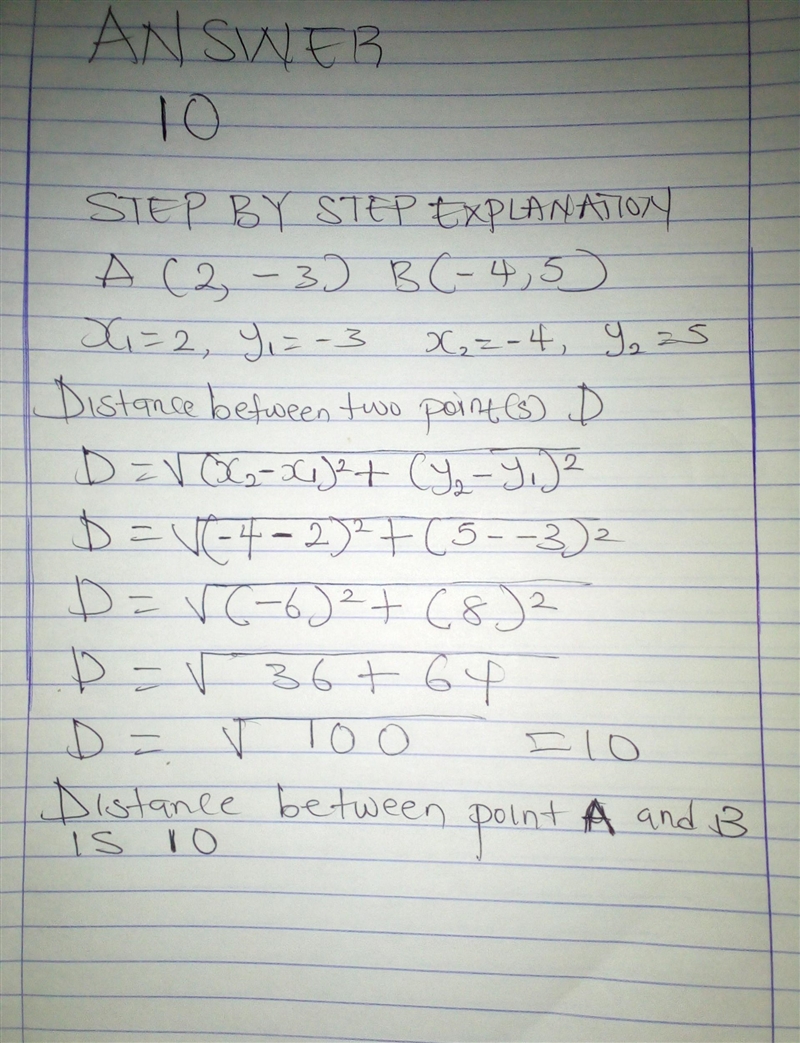 ANSWER
10
STEP BY STEP EXPLANATION
A (2, -3) B(-4,5)
x₁=2, y₁=-3 x₂=-4, y₂=5
Distance between two point(s) D
D = √(x₂-x₁)²+ (y₂-y₁)²
D = √(-4-2)²+(5--3)²
D = √(-6)²+(8)²
D = √ 36+64
D = √ 100 =10
Distance between point A and B
IS 10